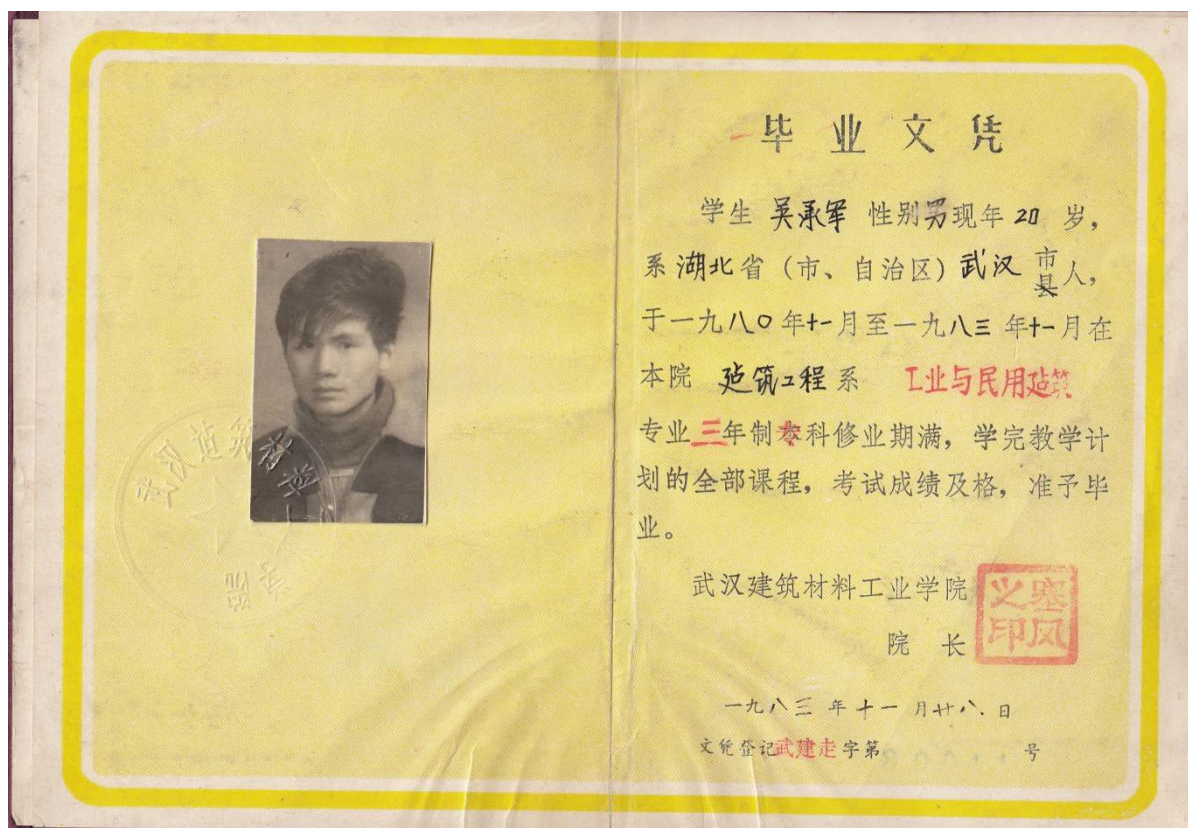 毕业文凭
学生 吴承军 性别男现年 20 岁，
系湖北省（市、自治区）武汉 市县人，
于一九八〇年十一月至一九八三年十一月在
本院 建筑工程系 工业与民用建筑
专业三年制本科修业期满，学完教学计
划的全部课程，考试成绩及格，准予毕
业。
武汉建筑材料工业学院
院 长
塞风之印
一九八三年十一月廿八日
文凭登记武建走字第 号
武汉建筑材料
学院